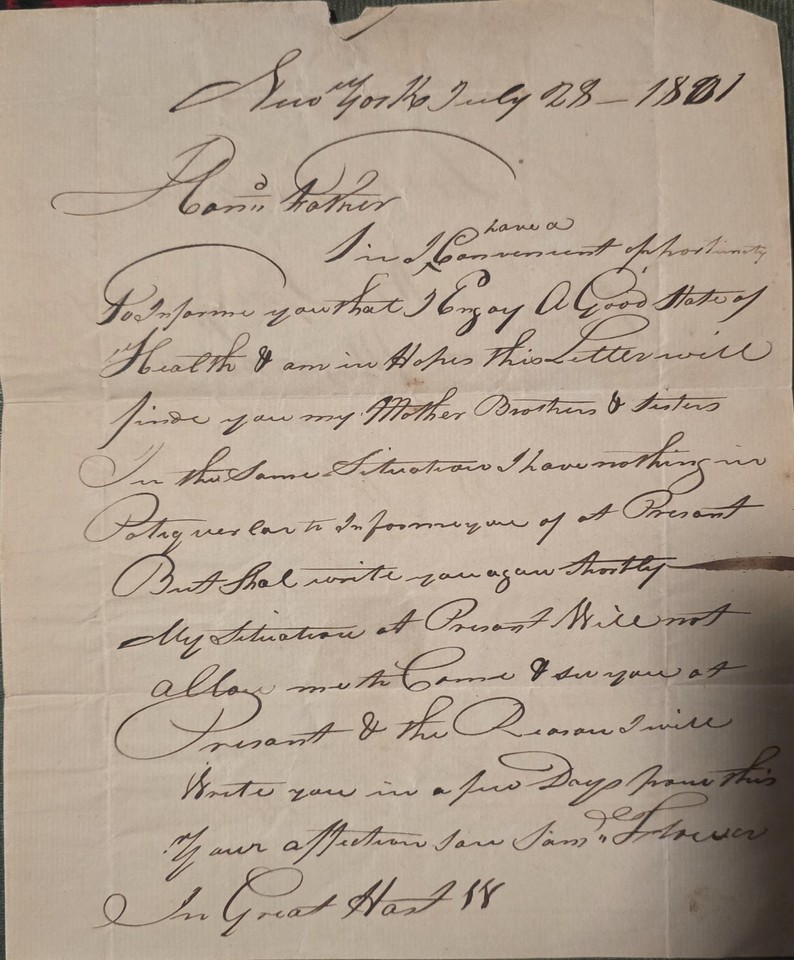 New York July 28 – 1801
Hond Father
Sir I have a Convenient opportunity
To Informe you that I Enjoy A Good State of
Health & am in Hopes this Letter will
finde you my Mother Brothers & Sisters
In the Same Situation I have nothing in
Patiquerlar to Informe you of at Present
But Shal write you again Shortly
My Situation at Present Will not
allow me to Come & see you at
Present & the Reason I will
Write you in a few Days from this
Your affection Son Saml Flower
In Great Hast